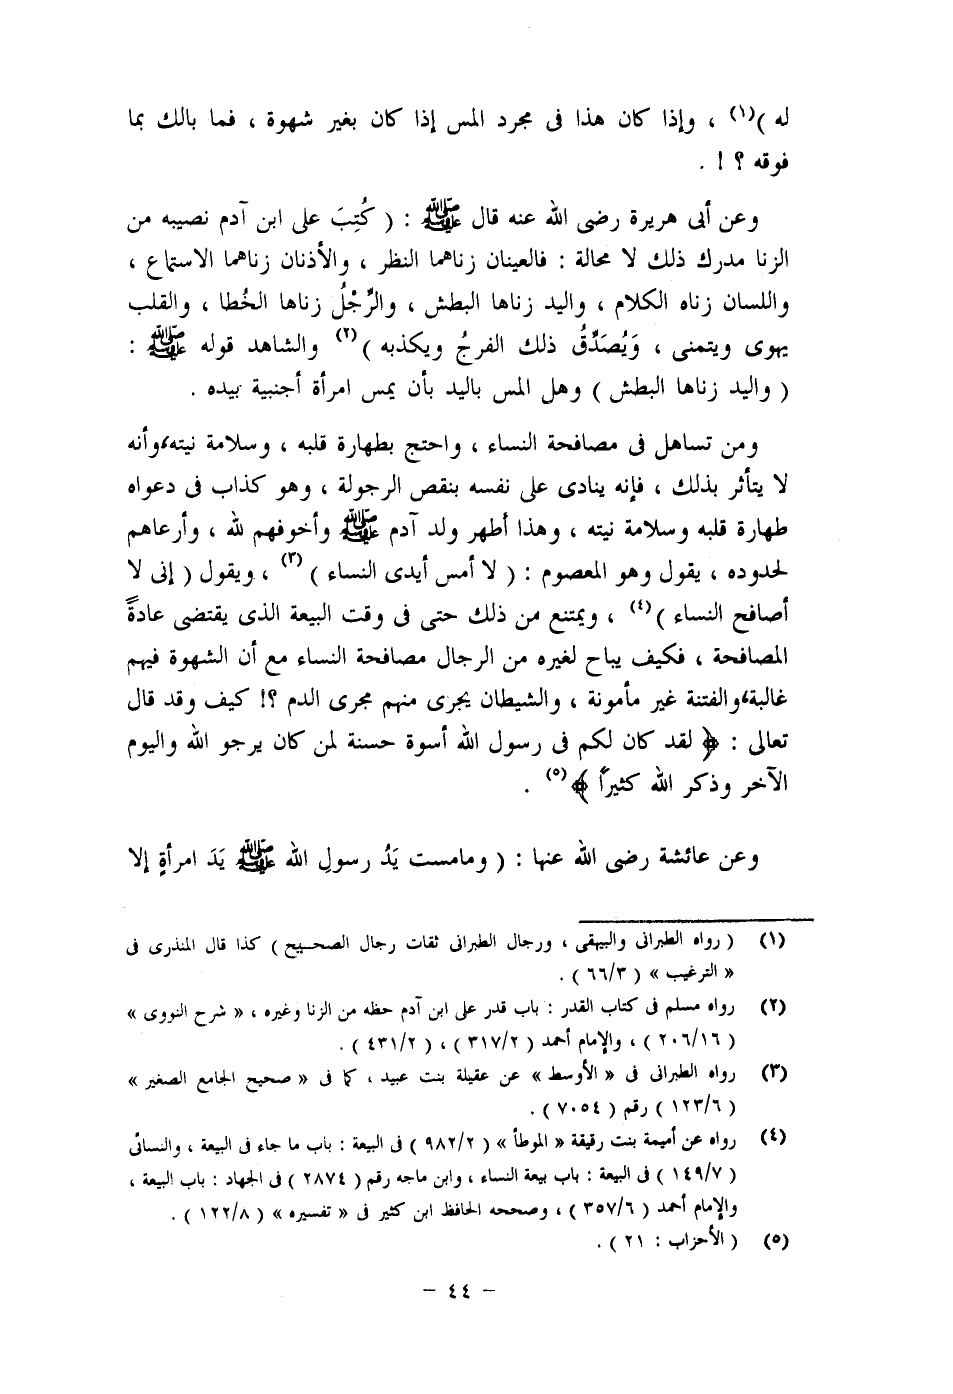 له )(١) ، وإذا كان هذا فى مجرد المس إذا كان بغير شهوة ، فما بالك بما
فوقه ؟ ! .
وعن أبى هريرة رضى الله عنه قال ﷺ : ( كُتِبَ على ابن آدم نصيبه من
الزنا مدرك ذلك لا محالة : فالعينان زناهما النظر ، والأذنان زناهما الاستماع ،
واللسان زناه الكلام ، واليد زناها البطش ، والرِّجْلُ زناها الخُطا ، والقلب
يهوى ويتمنى ، وَيُصَدِّقُ ذلك الفرجُ ويكذبه )(٢) والشاهد قوله ﷺ :
( واليد زناها البطش ) وهل المس باليد بأن يمس امرأة أجنبية بيده .
ومن تساهل فى مصافحة النساء ، واحتج بطهارة قلبه ، وسلامة نيته، وأنه
لا يتأثر بذلك ، فإنه ينادى على نفسه بنقص الرجولة ، وهو كذاب فى دعواه
طهارة قلبه وسلامة نيته ، وهذا أطهر ولد آدم ﷺ وأخوفهم لله ، وأرعاهم
لحدوده ، يقول وهو المعصوم : ( لا أمس أيدى النساء )(٣) ، ويقول ( إنى لا
أصافح النساء )(٤) ، ويمتنع من ذلك حتى فى وقت البيعة الذى يقتضى عادةً
المصافحة ، فكيف يباح لغيره من الرجال مصافحة النساء مع أن الشهوة فيهم
غالبة، والفتنة غير مأمونة ، والشيطان يجرى منهم مجرى الدم ؟! كيف وقد قال
تعالى : ﴿ لقد كان لكم فى رسول الله أسوة حسنة لمن كان يرجو الله واليوم
الآخر وذكر الله كثيراً ﴾(٥) .
وعن عائشة رضى الله عنها : ( ومامست يَدُ رسولِ الله ﷺ يَدَ امرأةٍ إلا
(١) ( رواه الطبرانى والبيهقى ، ورجال الطبرانى ثقات رجال الصحيح ) كذا قال المنذرى فى
« الترغيب » ( ٦٦/٣ ) .
(٢) رواه مسلم فى كتاب القدر : باب قدر على ابن آدم حظه من الزنا وغيره ، « شرح النووى »
( ٢٠٦/١٦ ) ، والإمام أحمد ( ٣١٧/٢ ) ، ( ٤٣١/٢ ) .
(٣) رواه الطبرانى فى « الأوسط » عن عقيلة بنت عبيد ، كما فى « صحيح الجامع الصغير »
( ١٢٣/٦ ) رقم ( ٧٠٥٤ ) .
(٤) رواه عن أميمة بنت رقيقة « الموطأ » ( ٩٨٢/٢ ) فى البيعة : باب ما جاء فى البيعة ، والنسائى
( ١٤٩/٧ ) فى البيعة : باب بيعة النساء ، وابن ماجه رقم ( ٢٨٧٤ ) فى الجهاد : باب البيعة ،
والإمام أحمد ( ٣٥٧/٦ ) ، وصححه الحافظ ابن كثير فى « تفسيره » ( ١٢٢/٨ ) .
(٥) ( الأحزاب : ٢١ ) .
– ٤٤ –